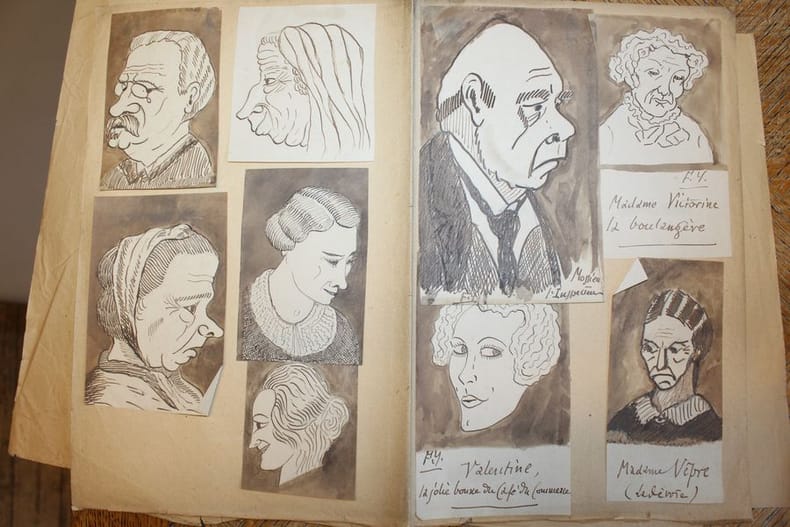 Mossieu
F.Y.
Madame Victorine
la boulangère
F.Y.
Valentine,
la jolie bonne du Café du Commerce
Madame Vipre